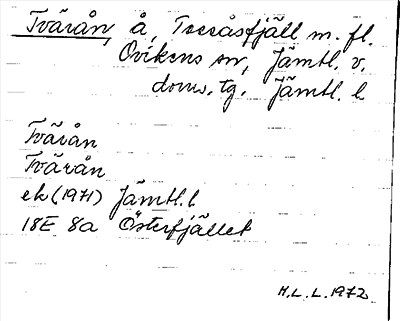 Tvärån, å, Tossåsfjäll m. fl.
Ovikens sn, Jämtl. v.
doms. tg. Jämtl. l
Tvärån
Tvärån
ek (1971) Jämtl. l
18E 8a Österfjället
H.L.L. 1972